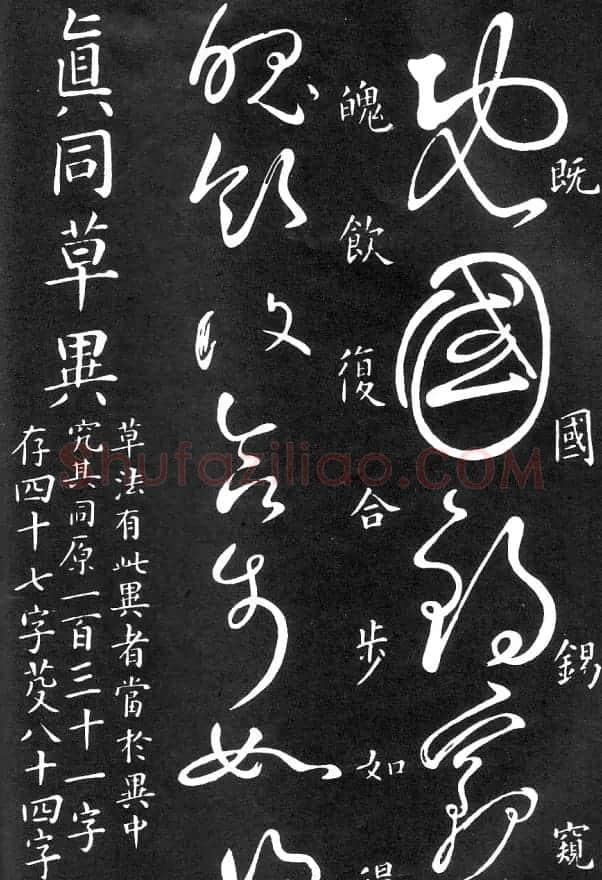 既國錫窺
既國錫窺
魄飲復合步如得
魄飲復合步如得
眞同草異
草法有此異者當於異中
究其同原一百三十一字
存四十七字芟八十四字
Shufaziliao.COM